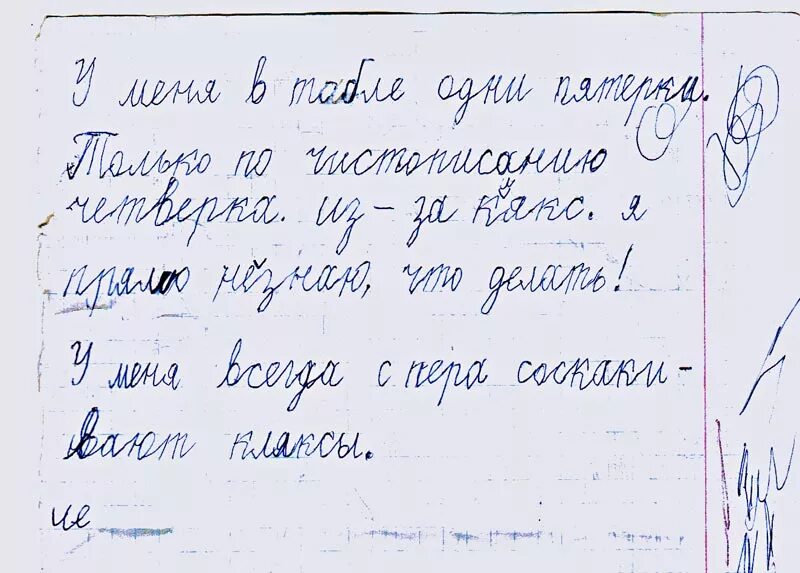 У меня в табле одни пятерки.
Только по чистописанию
четверка. из-за кякс. я
прямо незнаю, что делать!
У меня всегда с пера соскаки-
вают кляксы.
че